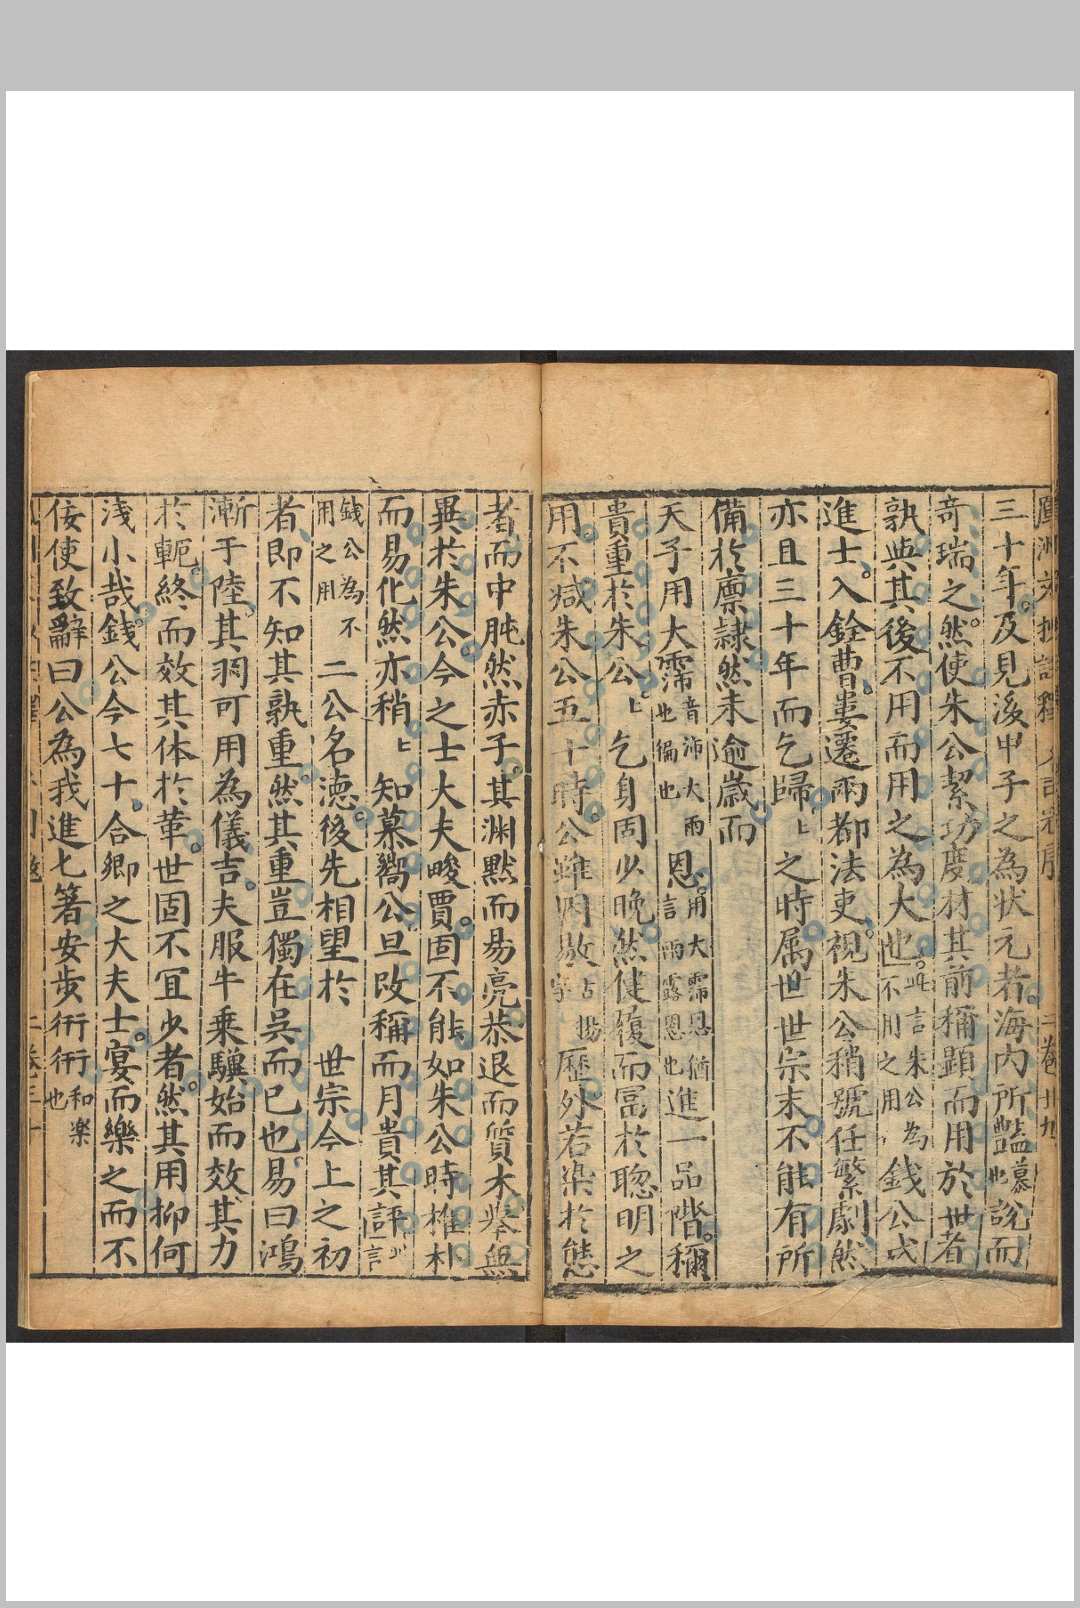 三十年及見後甲子之為狀元者海內所豔慕也說而
奇瑞之然使朱公絜功度材其前稱顯而用於世者
孰與其後不用而用之為大也此言朱公為不用之用錢公戊
進士入銓曹婁遷兩都法吏視朱公稍號任繁劇然
亦且三十年而乞歸上之時属世世宗末不能有所
備於禀隷然未逾歲而
天子用大霈音沛大雨也徧也恩用大霈恩猶言雨露恩也進一品階稱
貴重於朱公上乞身固少晚然健履而富於聦明之
用不减朱公五十時公雖因歷外若染於態
者而中肫然赤子其渊默而易亮恭退而質木举無
異於朱公今之士大夫畯賈固不能如朱公時椎朴
而易化然亦稍上知慕嚮公旦改稱而月貴其評此言
錢公為不用之用二公名德後先相望於世宗今上之初
者即不知其孰重然其重豈獨在吳而已也易曰鴻
漸于陸其羽可用為儀吉夫服牛乘驥始而效其力
於軛終而效其体於葷世固不冝少者然其用抑何
淺小哉錢公今七十合卿之大夫士宴而樂之而不
佞使致辭曰公為我進七箸安步衎衎和樂也